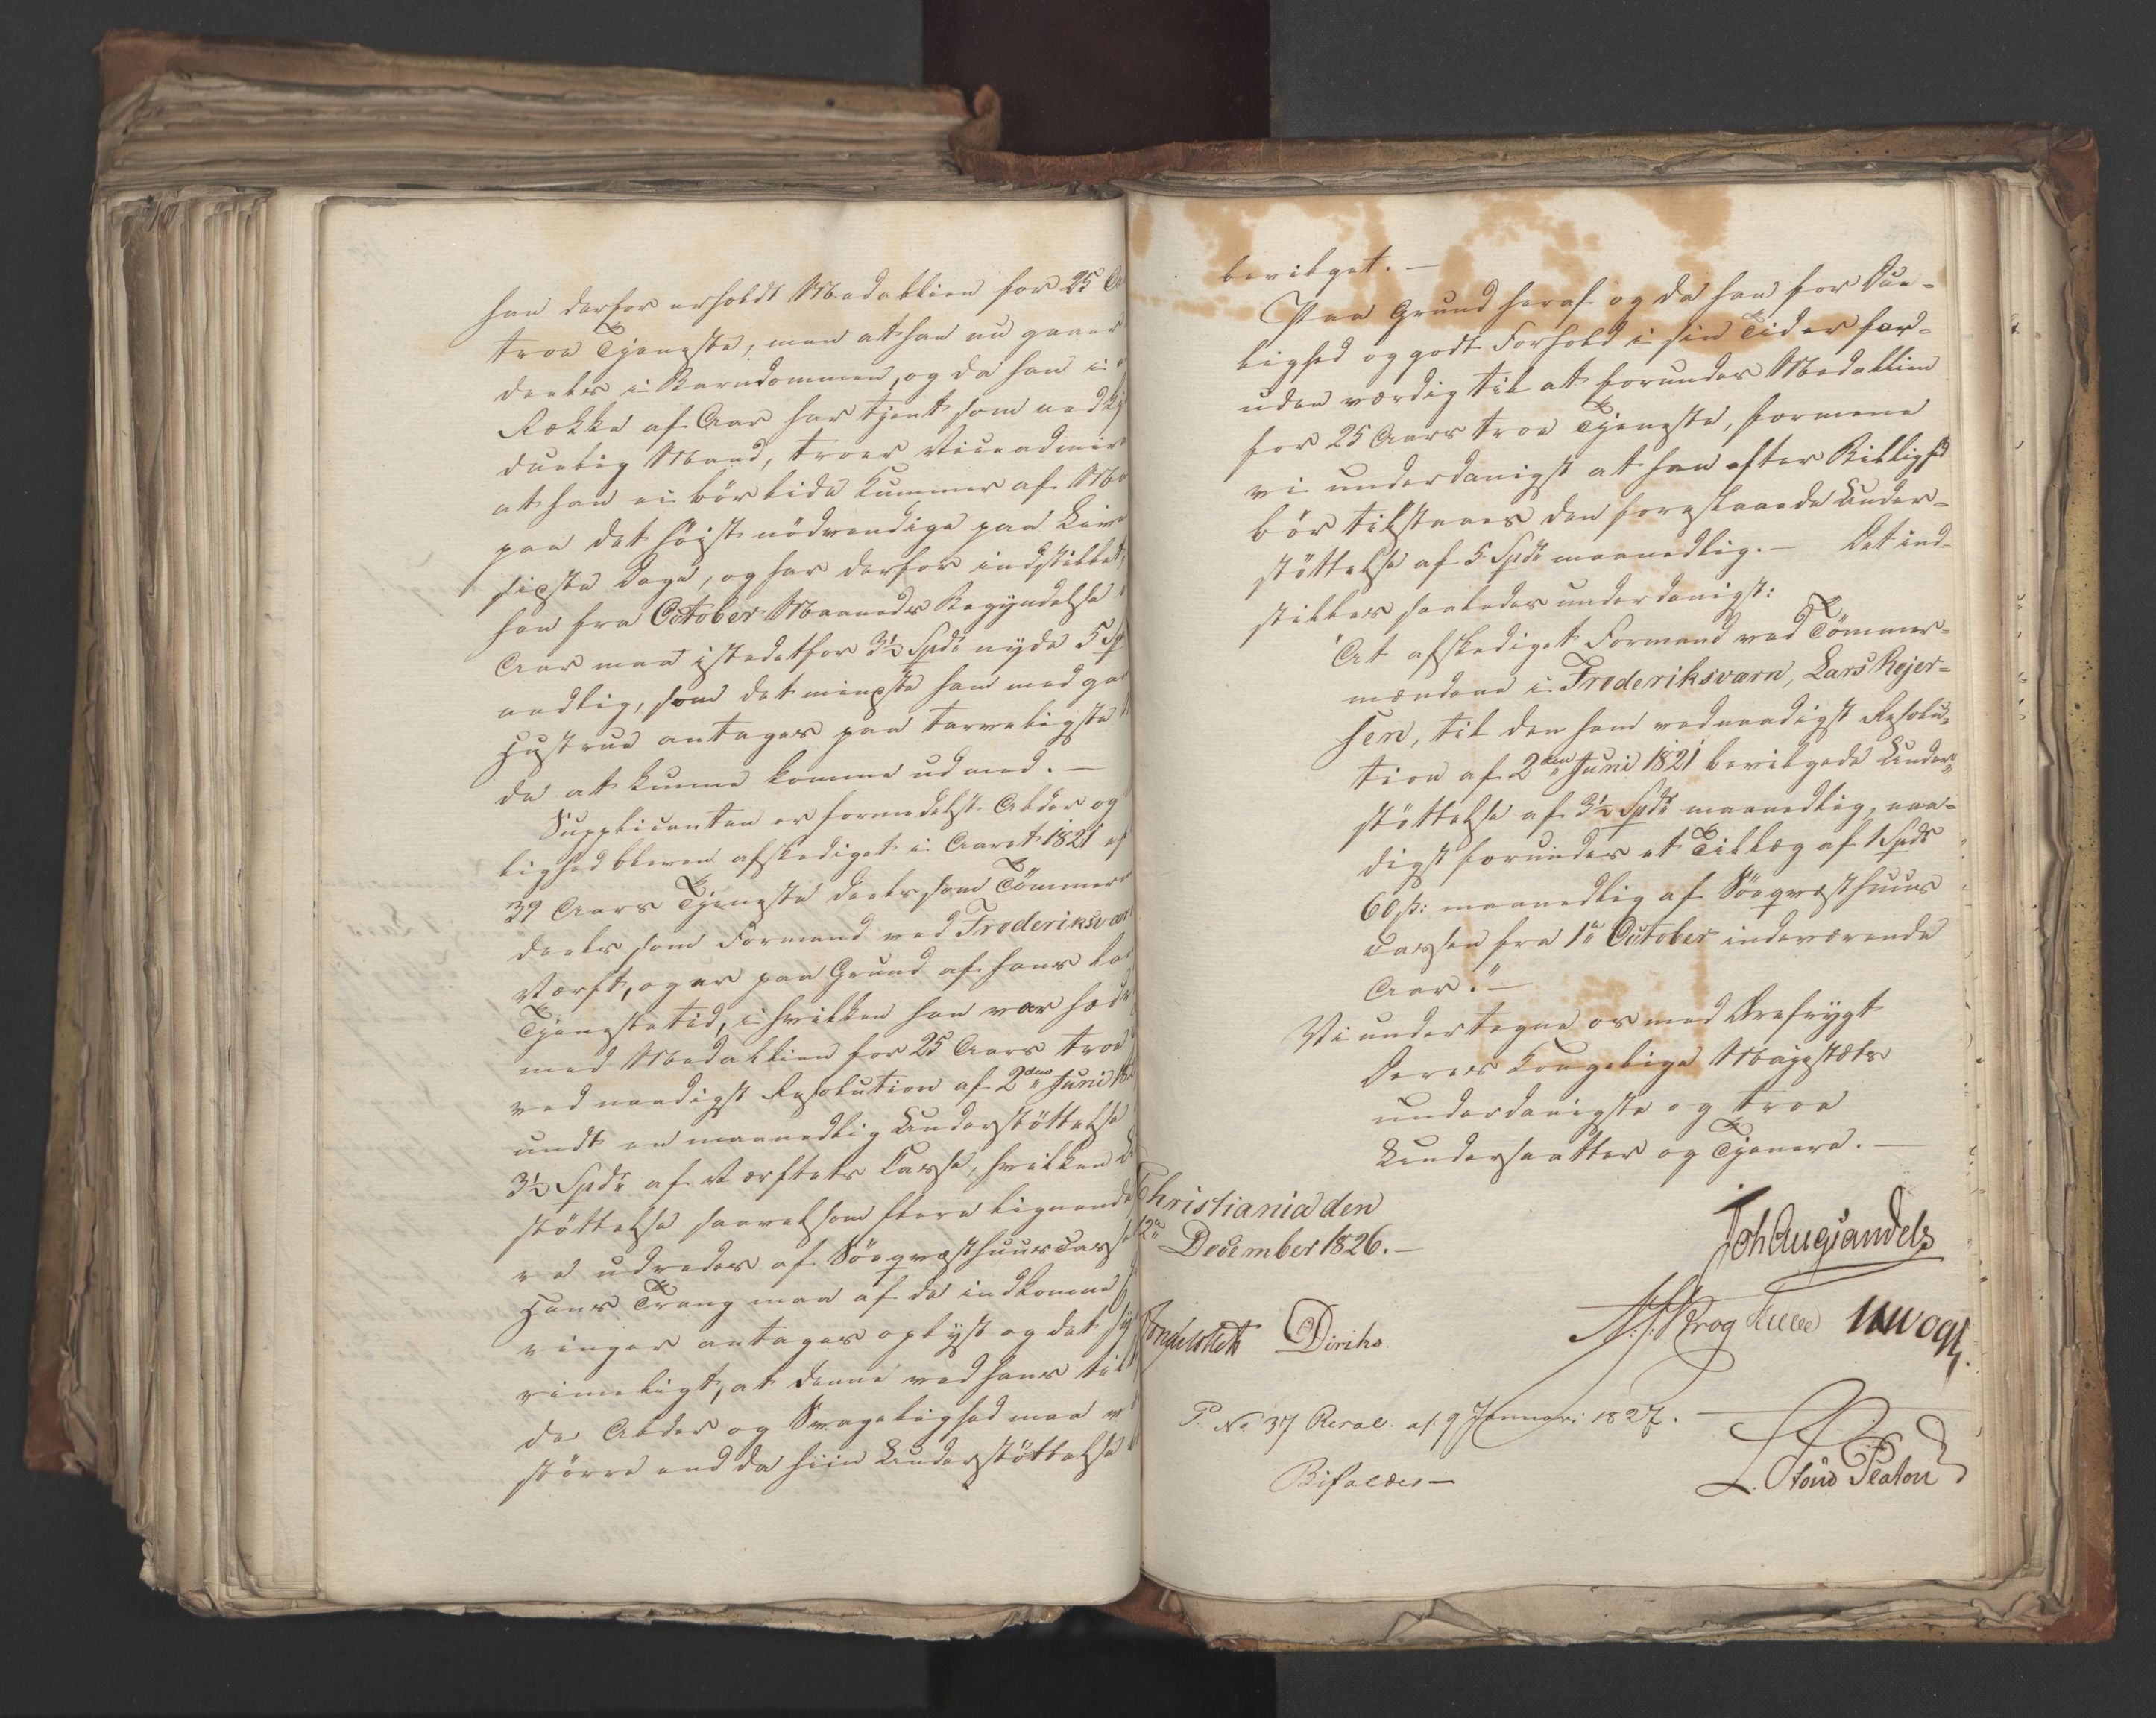 han derfor erholdt Medaillien for 25 A
troe Tjeneste, men at han nu gaaer
deels i Barndommen, og da han i
Række af Aar har tjent som
duelig Mand, troer Viceadmir
at han ei bör lide Kummer af Ma
paa det höist nödvendige paa Liv
sidste Dage, og har derfor indstillet
han fra October Maaneds Begyndelse
Aar maa istedetfor 3½ Spdr nyde 5 Sp
nedlig, som det mindste han med ga
Hustrue antages paa tarveligste
de at kunne komme ud med. —
Supplicanten er formedelst Alder og
lighed bleven afskediget i Aaret 1821 ef
39 Aars Tjeneste deels som Tömmer
deels som Formand ved Frederiksvær
Værft, og er paa Grund af hans la
Tjenestetid, i hvilken han var hæd
med Medaillien for 25 Aars troe
ved naadigst Resolution af 2den Juni 18
undt en maanedlig Understöttelse
3½ Spdr af Værftets Casse, hvilken
stöttelse saavelsom flere lignende
re udredes af Söeqvæsthuuscass
Hans Trang maa af de indkomne
ringer antages oplyst og det sy
rimeligt, at denne ved hans til
de Alder og Svagelighed maa v
större end da hiin Understöttelse
bevilget. —
Paa Grund heraf og da han for Due-
lighed og godt Forhold i sin Tid er fær-
uden værdig til at forundes Medaillien
for 25 Aars troe Tjeneste, formene
vi underdanigst at han efter Billighed
bör tilstaaes den foreslaaede Under-
stöttelse af 5 Spdr maanedlig. — Det ind-
stilles saaledes underdanigst:
"At afskediget Formand ved Tömmer-
mændene i Frederiksværn, Lars Rejer-
sen, til den ham ved naadigst Resolu-
tion af 2den Juni 1821 bevilgede Under-
stöttelse af 3½ Spdr maanedlig, naa-
digst forundes et Tillæg af 1 Spdr
60 ß: maanedlig af Söeqvæsthuus
cassen fra 1e October indeværende
Aar." —
Vi undertegne os med Ærefrygt
Deres Kongelige Majestæts
underdanigste og troe
Undersaatter og Tjenere. —
Christiania den
12e December 1826. —
Joh Aug Sandels
Diriks
Krog
P. No 37 Resol. af 9 Januari 1827.
Bifaldes —
L. Stoud Platou